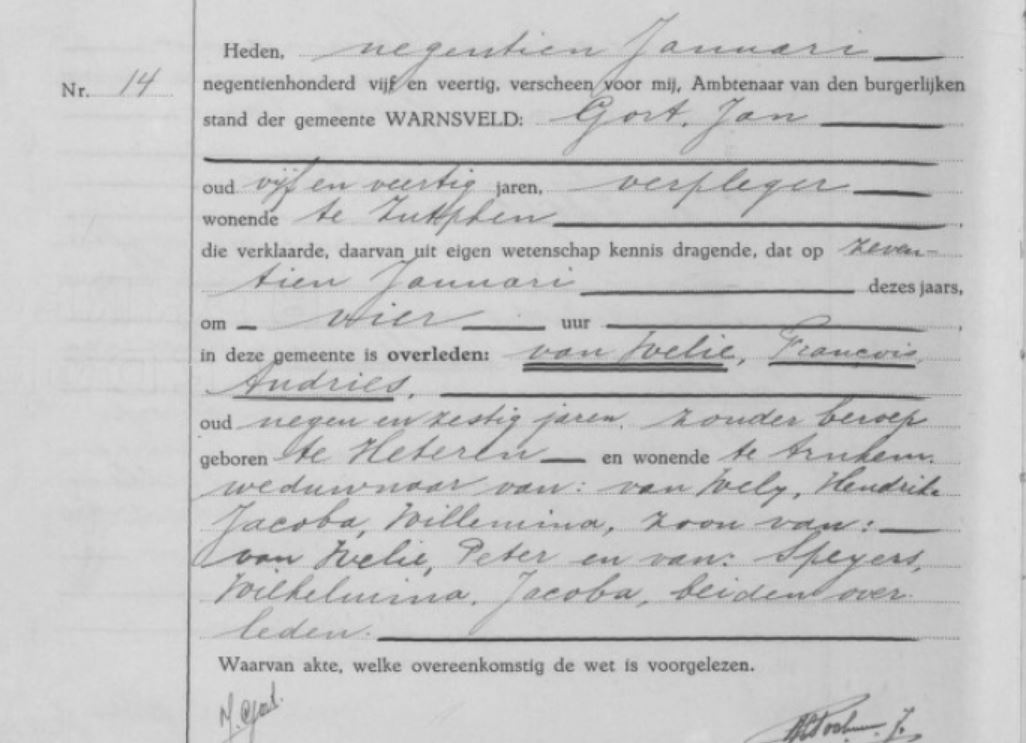 Heden, negentien Januari
Nr. 14 negentienhonderd vijf en veertig, verscheen voor mij, Ambtenaar van den burgerlijken
stand der gemeente WARNSVELD: Gort, Jan
oud vijf en veertig jaren, verpleger
wonende te Zutphen,
die verklaarde, daarvan uit eigen wetenschap kennis dragende, dat op zeven-
tien Januari dezes jaars,
om vier uur ,
in deze gemeente is overleden: van Welie, François
Andries,
oud negen en zestig jaren, zonder beroep
geboren te Heteren en wonende te Arnhem.
weduwnaar van: van Wely, Hendrika
Jacoba, Willemina, zoon van:
van Welie, Peter en van: Speyers,
Wilhelmina, Jacoba, beiden over-
leden.
Waarvan akte, welke overeenkomstig de wet is voorgelezen.
J. Gort.